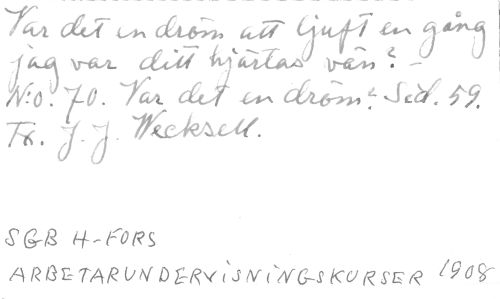 Var det en dröm att ljuft en gång
jag var ditt hjärtas vän? –
N:o. 70. Var det en dröm? Sid. 59.
Fx. J. J. Wecksell.
SGB H-FORS
ARBETARUNDERVISNINGSKURSER 1908